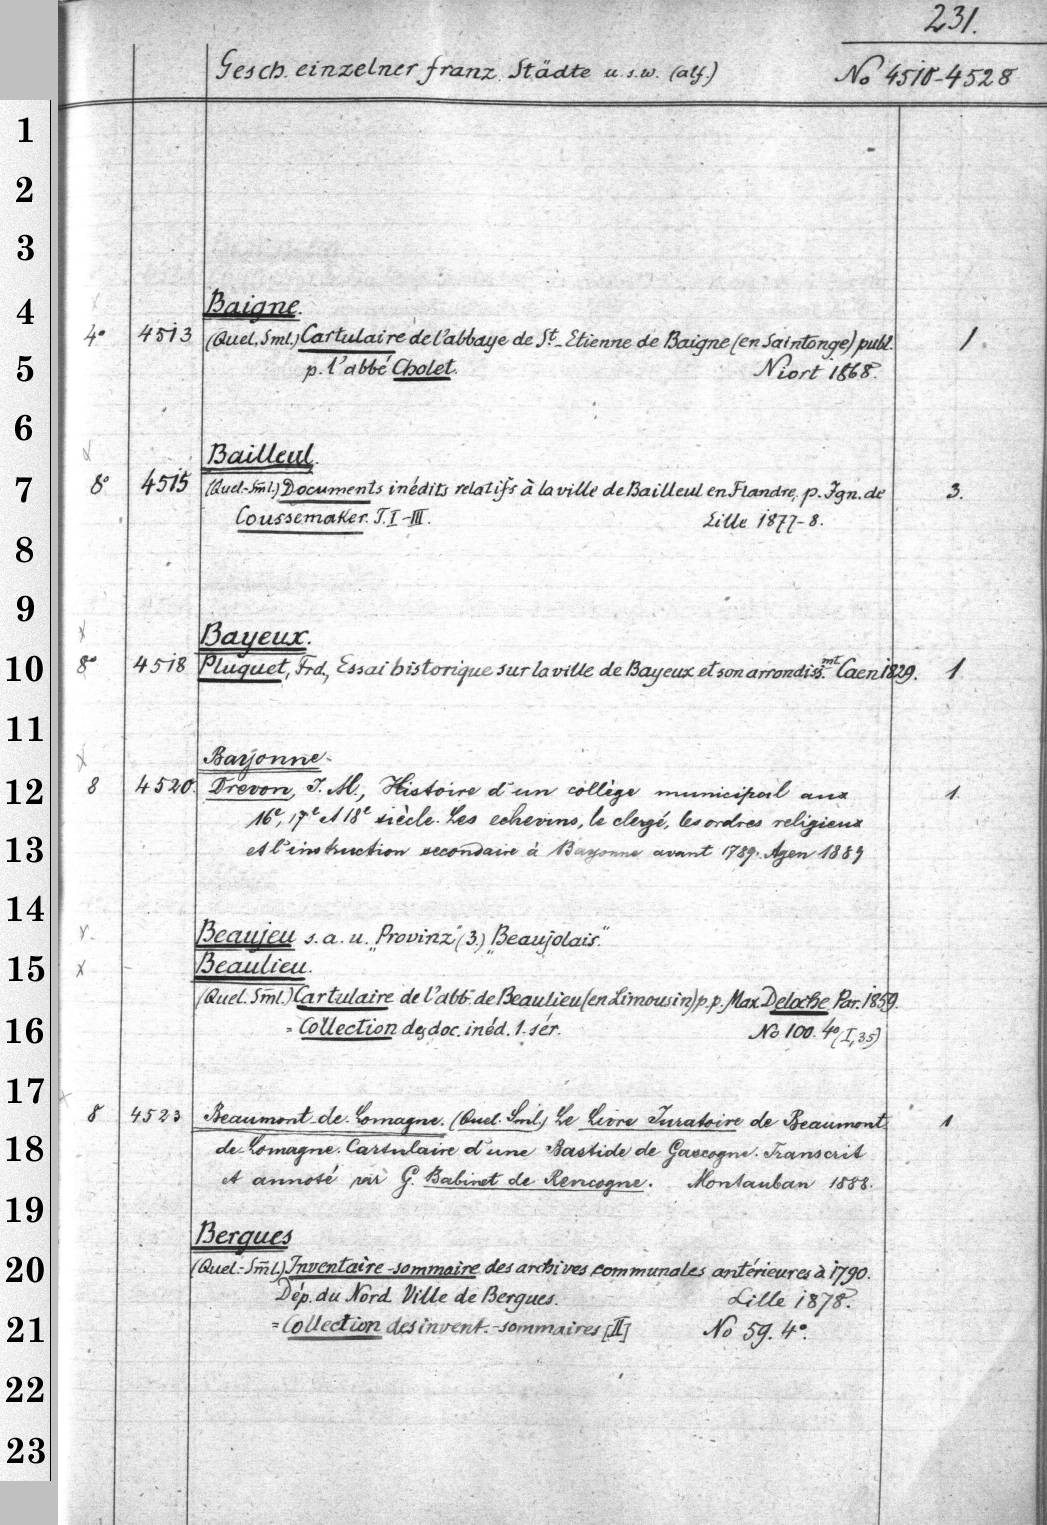 231.
Gesch. einzelner franz. Städte u.s.w. (alf.) No 4510-4528
1
2
3
4
Baigne.
4° 4513 (Quel. Sml.) Cartulaire de l'abbaye de St.-Etienne de Baigne (en Saintonge) publ. 1.
5
p. l'abbé Cholet. Niort 1868.
6
Bailleul.
7
8° 4515 (Quel.-Sml.) Documents inédits relatifs à la ville de Bailleul en Flandre, p. Ign. de 3.
Coussemaker. T. I-III. Lille 1877-8.
8
9
x
Bayeux.
10
8° 4518 Pluquet, Frd., Essai historique sur la ville de Bayeux et son arrondiss.mt Caen 1829. 1
11
x
Bayonne.
12
8 4520. Drevon, J. M., Histoire d'un collège municipal aux 1.
16e, 17e et 18e siècle. Les echevins, le clergé, les ordres religieux
13
et l'instruction secondaire à Bayonne avant 1789. Agen 1889
14
x. Beaujeu s. a. u. „Provinz" (3.) „Beaujolais."
15
x Beaulieu.
(Quel. Sml.) Cartulaire de l'abb. de Beaulieu (en Limousin) p. p. Max. Deloche Par. 1859.
16
= Collection des doc. inéd. 1. sér. No 100. 4° (I, 35)
17
x 8 4523 Beaumont-de-Lomagne. (Quel. Sml.) Le Livre Juratoire de Beaumont 1
18
de-Lomagne. Cartulaire d'une Bastide de Gascogne. Transcrit
et annoté par G. Babinet de Rencogne. Montauban 1888.
19
Bergues
20
(Quel.-Sml.) Inventaire-sommaire des archives communales antérieures à 1790.
Dép. du Nord. Ville de Bergues. Lille 1878.
21
= Collection des invent.-sommaires [II] No 59. 4°.
22
23